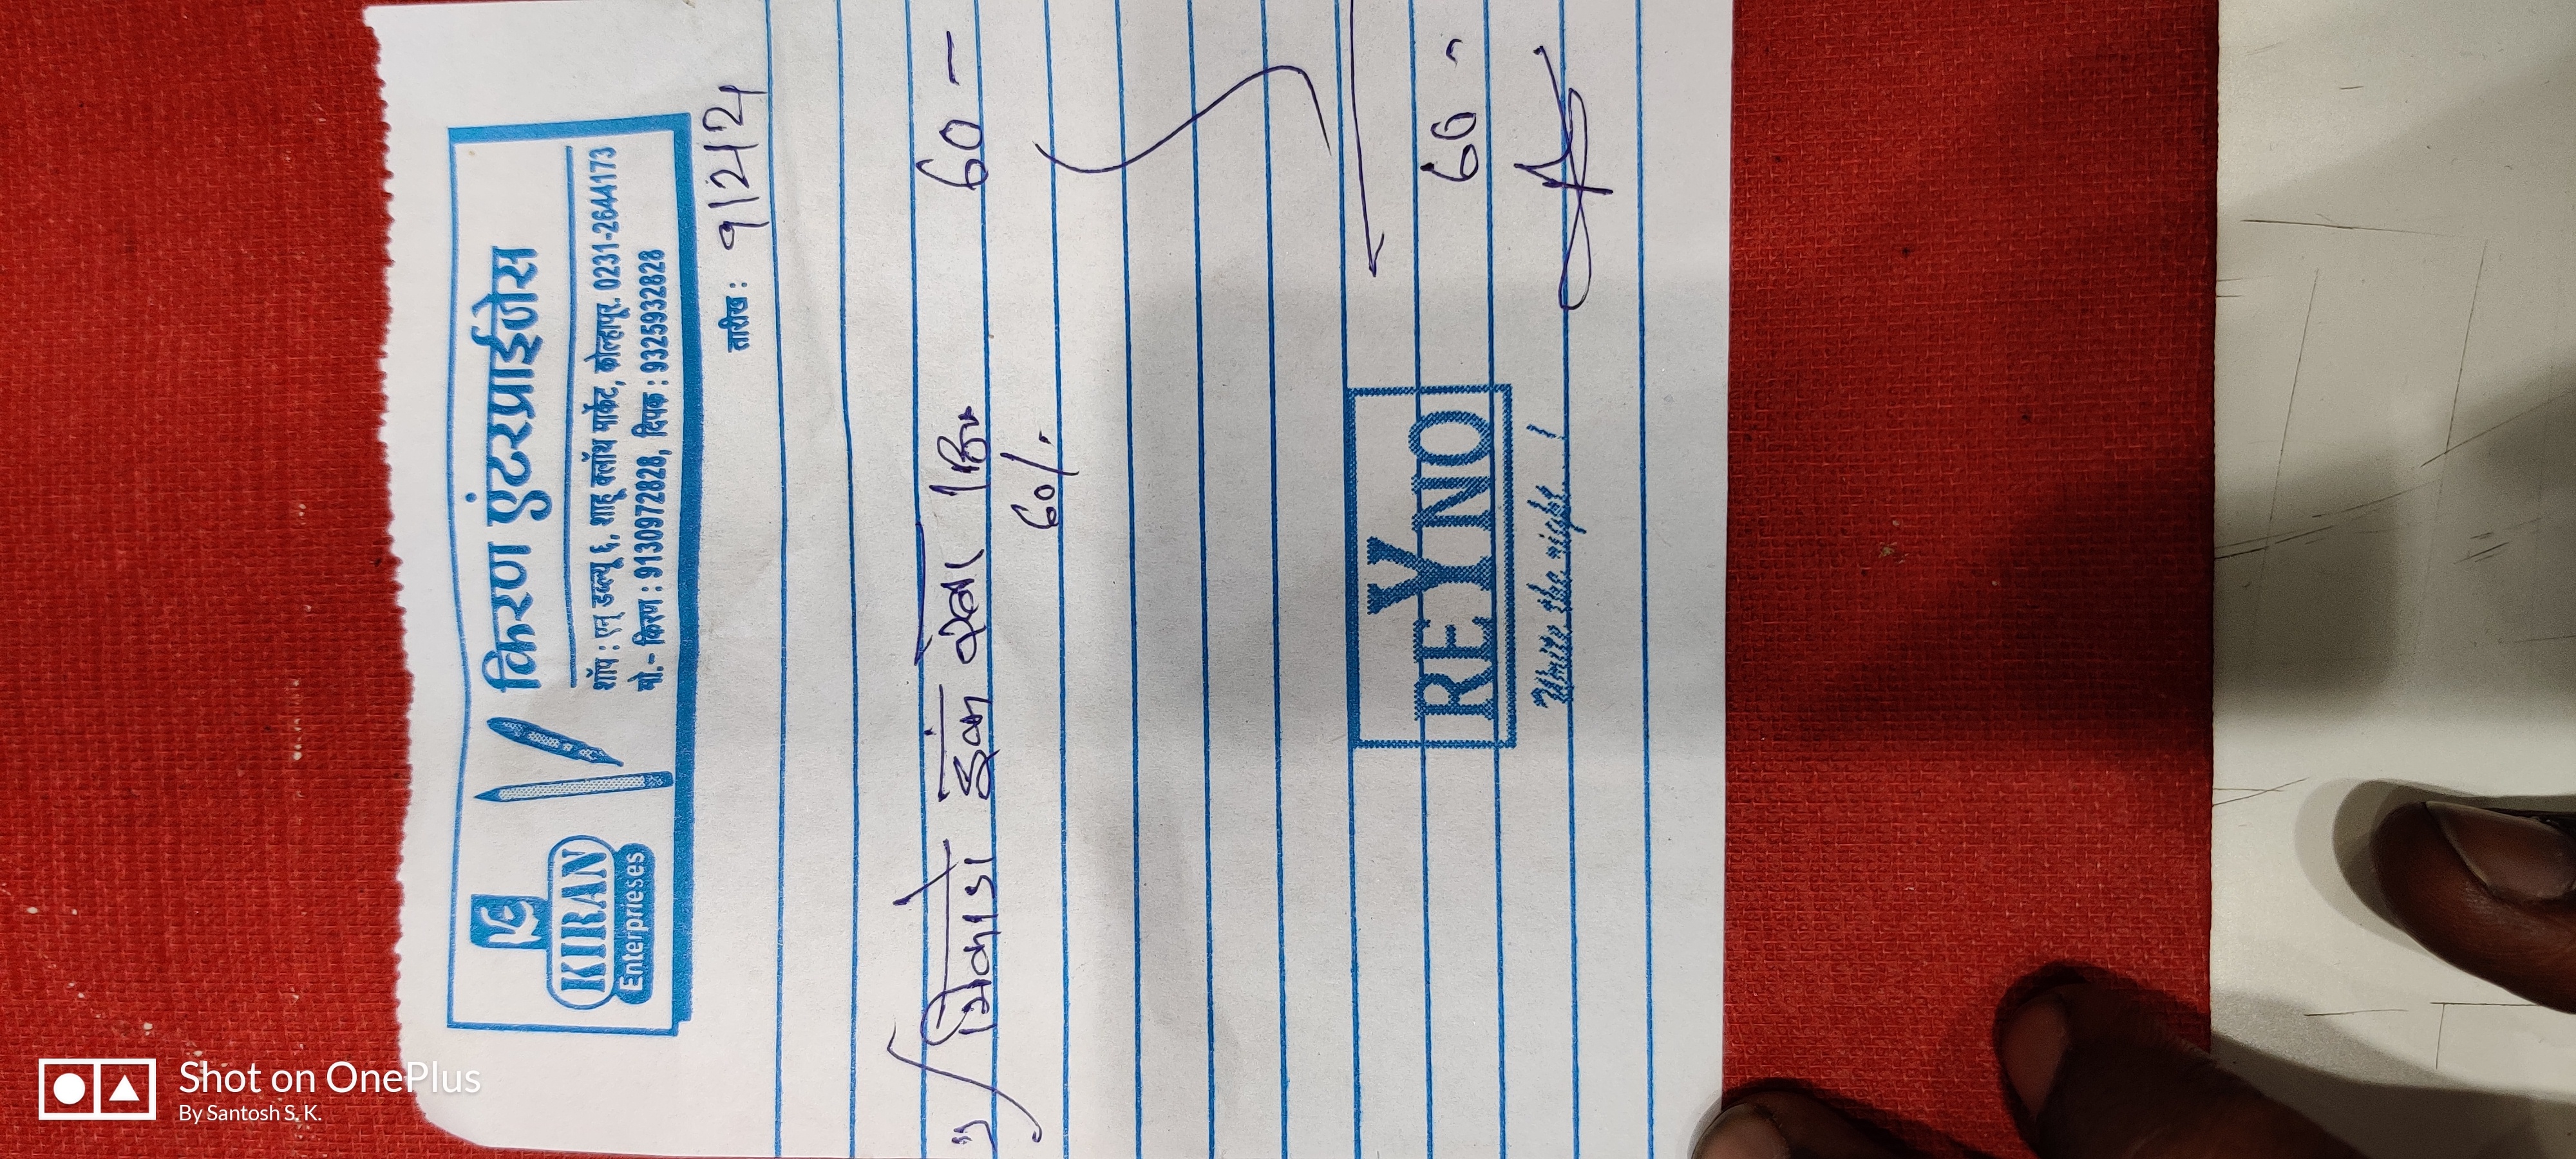 KE
KIRAN
Enterprieses
किरण एंटरप्राईजेस
शॉप : एन् डब्ल्यू ६, शाहू क्लॉथ मार्केट, कोल्हापूर. 0231-2644173
मो.- किरण : 9130972828, दिपक : 9325932828
तारीख :
60 —
60/-
60
REYNO
Write the right...!
Shot on OnePlus
By Santosh S. K.